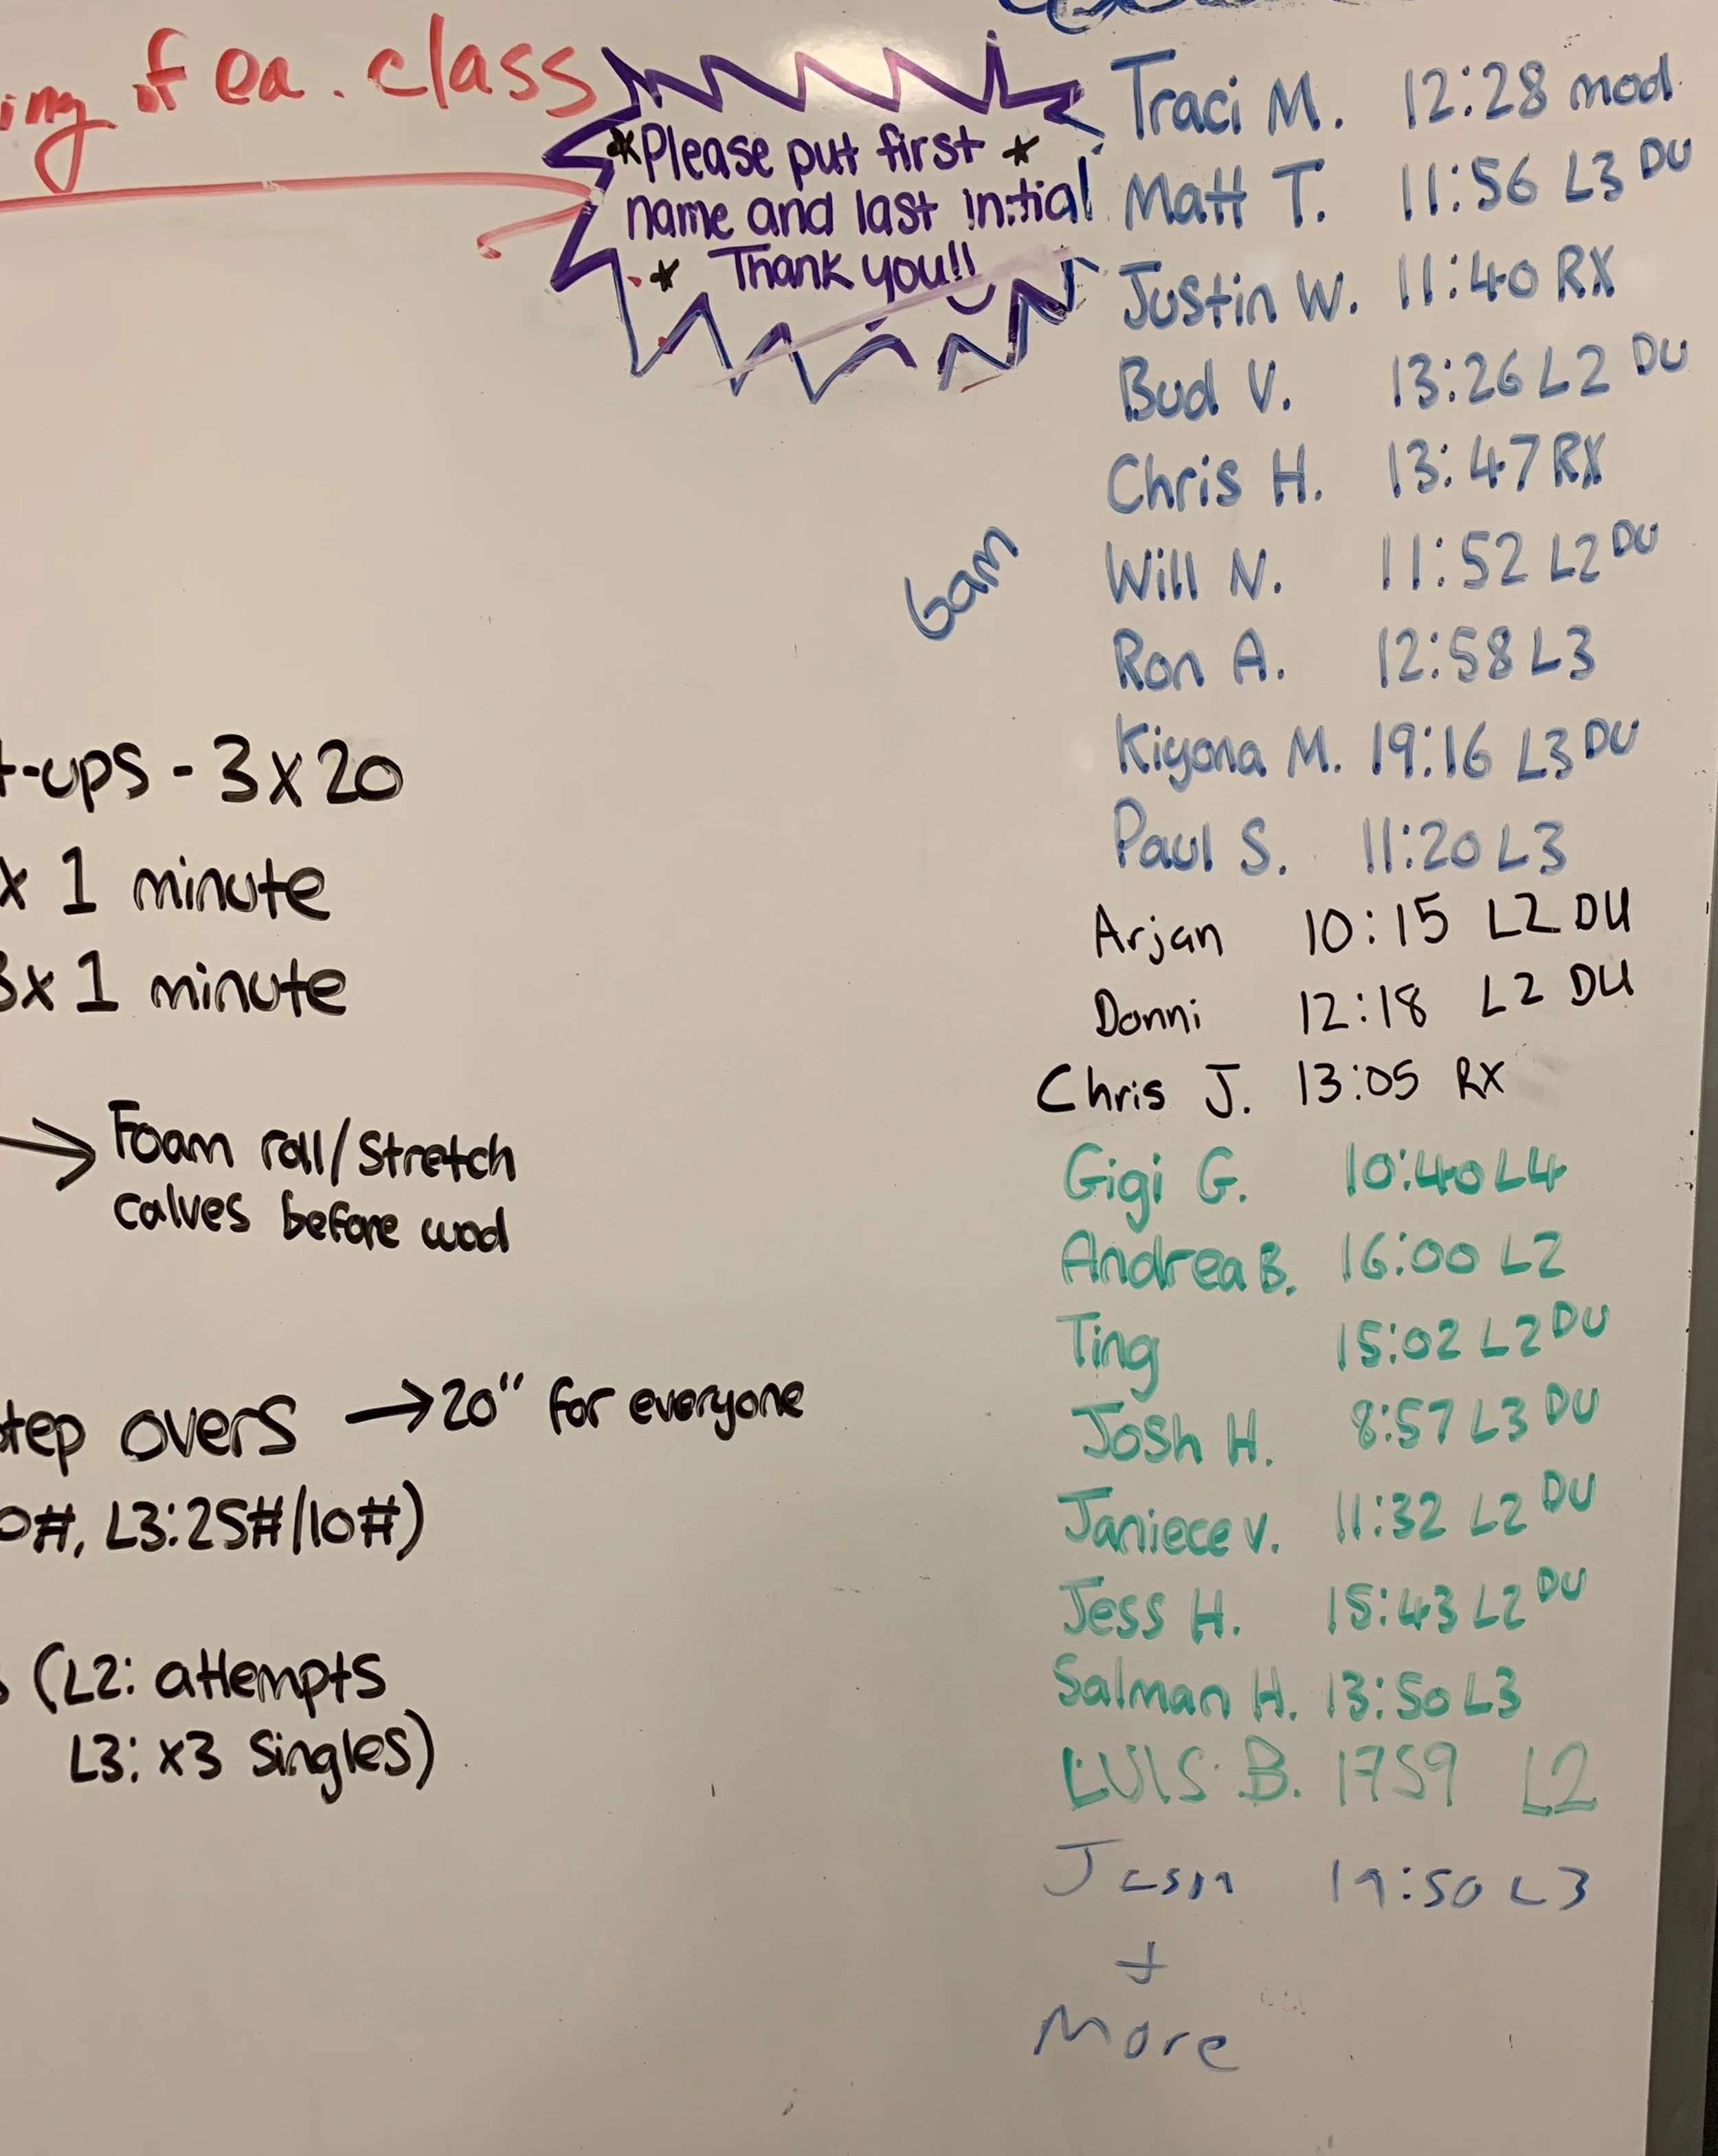 ing of ea. class
*Please put first *
name and last initial
* Thank you!!
Traci M. 12:28 mod.
Matt T. 11:56 L3 DU
Justin W. 11:40 RX
Bud V. 13:26 L2 DU
Chris H. 13:47 RX
6am
Will N. 11:52 L2 DU
Ron A. 12:58 L3
Kiyona M. 19:16 L3 DU
Paul S. 11:20 L3
Arjan 10:15 L2 DU
Donni 12:18 L2 DU
Chris J. 13:05 RX
Gigi G. 10:40 L4
Andrea B. 16:00 L2
Ting 15:02 L2 DU
Josh H. 8:57 L3 DU
Janiece V. 11:32 L2 DU
Jess H. 15:43 L2 DU
Salman H. 13:50 L3
LUIS B. 1759 L2
Jason 19:50 L3
+
More
-ups - 3x20
x 1 minute
3x 1 minute
→ Foam roll/stretch
calves before wod
tep overs → 20" for everyone
0#, L3:25#/10#)
s (L2: attempts
L3: x3 singles)